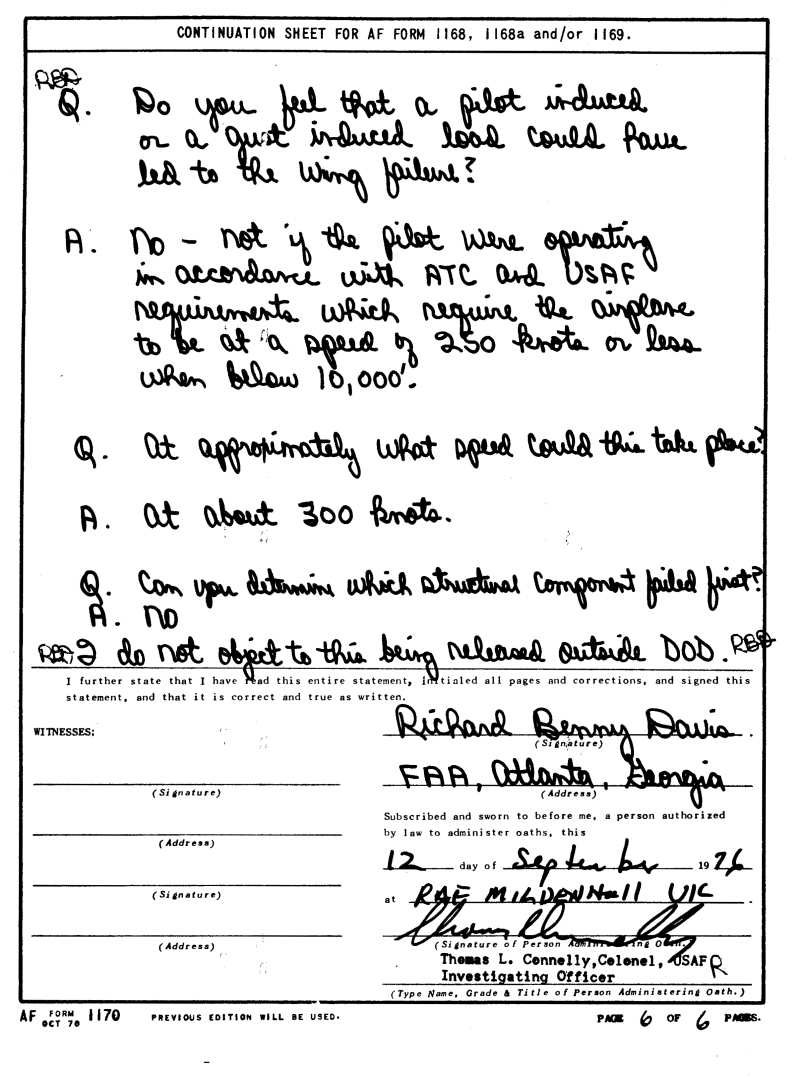 CONTINUATION SHEET FOR AF FORM 1168, 1168a and/or 1169.
RBD
Q. Do you feel that a pilot induced
or a gust induced load could have
led to the wing failure?
A. No - not if the pilot were operating
in accordance with ATC and USAF
requirements which require the airplane
to be at a speed of 250 knots or less
when below 10,000'.
Q. At approximately what speed could this take place?
A. At about 300 knots.
Q. Can you determine which structural component failed first?
A. NO
RBD I do not object to this being released outside DOD. RBD
I further state that I have read this entire statement, initialed all pages and corrections, and signed this
statement, and that it is correct and true as written.
WITNESSES:
Richard Benny Davis
(Signature)
FAA, Atlanta, Georgia
(Address)
(Signature)
(Address)
(Signature)
(Address)
Subscribed and sworn to before me, a person authorized
by law to administer oaths, this
12 day of September 1976
at RAF MILDENHall UK
(Signature of Person Administering Oath.)
Thomas L. Connelly, Colonel, USAFR
Investigating Officer
(Type Name, Grade & Title of Person Administering Oath.)
AF FORM OCT 70 1170 PREVIOUS EDITION WILL BE USED. PAGE 6 OF 6 PAGES.